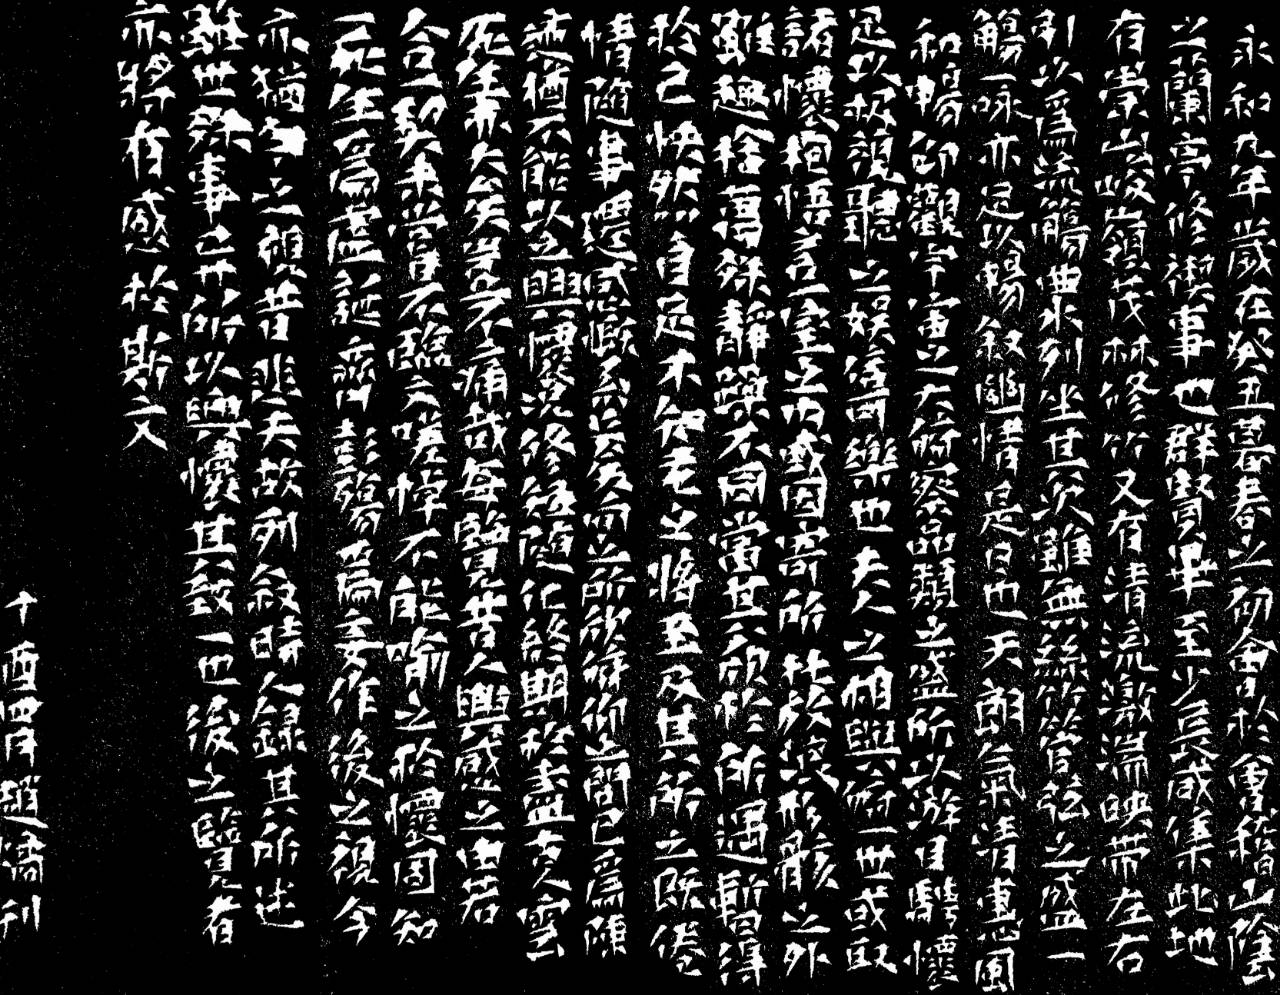 永和九年歲在癸丑暮春之初會于於會稽山陰
之蘭亭修禊事也群賢畢至少長咸集此地
有崇山峻嶺茂林修竹又有清流激湍映帶左右
引以為流觴曲水列坐其次雖無絲竹管弦之盛一
觴一詠亦足以暢敘幽情是日也天朗氣清惠風
和暢仰觀宇宙之大俯察品類之盛所以游目騁懷
足以極視聽之娛信可樂也夫人之相與俯一世或取
諸懷抱悟言一室之內或因寄所托放浪形骸之外
雖趣捨萬殊靜躁不同當其欣於所遇暫得
於己怏然自足不知老之將至及其所之既倦
情隨事遷感慨系之矣向之所欣俯仰之間已為陳
迹猶不能以之興懷況修短隨化終期於盡古人云
死生亦大矣豈不痛哉每覽昔人興感之由若
合一契未嘗不臨文嗟悼不能喻之於懷固知
一死生為虛誕齊彭殤為妄作後之視今
亦猶今之視昔悲夫故列敘時人錄其所述
雖世殊事異所以興懷其致一也後之覽者
亦將有感於斯文
酉四月趙 刊